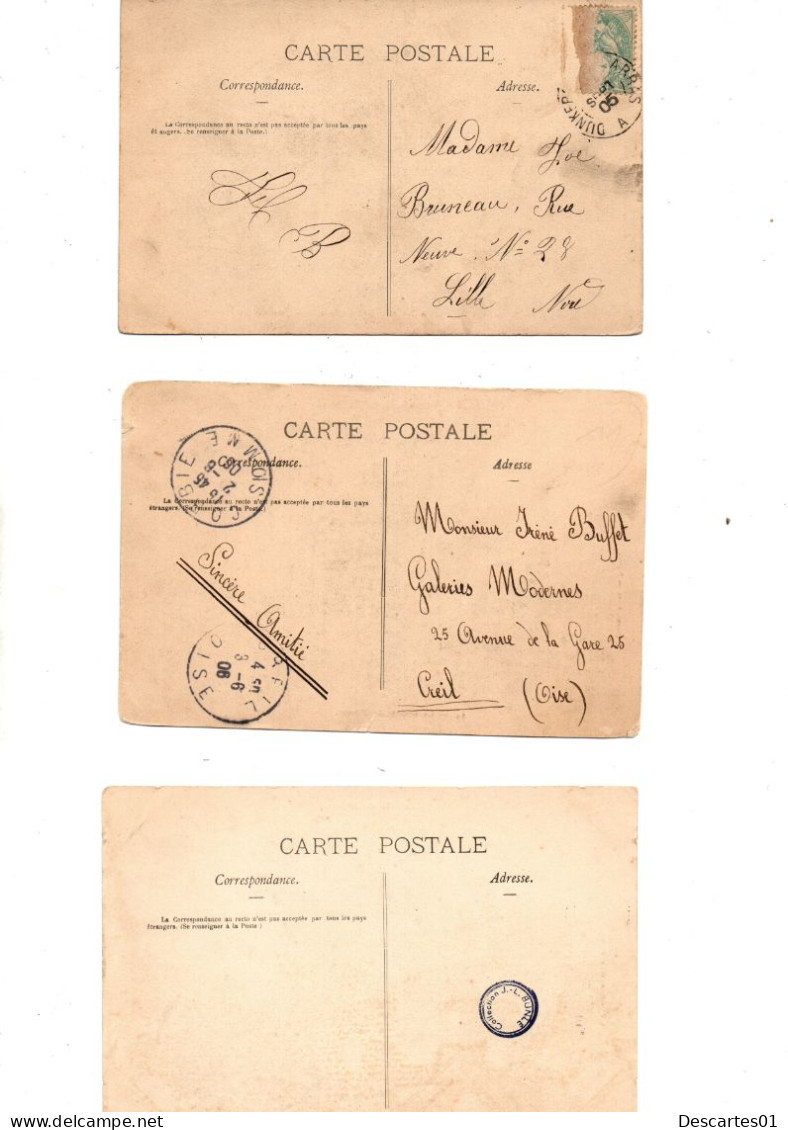 CARTE POSTALE
Correspondance.
Adresse.
La Correspondance au recto n'est pas acceptée par tous les pays
ét angers. (Se renseigner à la Poste.)
ARRAS A DUNKER
05
Madame Zoé
Bruneau, Rue
Neuve. Nº 28
Lille Nord
B
CARTE POSTALE
Correspondance.
Adresse
La Correspondance au recto n'est pas acceptée par tous les pays
étrangers. (Se renseigner à la Poste.)
CORBIE SOMME
18 45
2 -6
06
Sincère Amitié
CREIL OISE
-6
06
Monsieur Iréné Buffet
Galeries Modernes
25 Avenue de la Gare 25
Creil (Oise)
CARTE POSTALE
Correspondance.
Adresse.
La Correspondance au recto n'est pas acceptée par tous les pays
étrangers. (Se renseigner à la Poste)
Collection J.-L. BUNLE
Descartes01